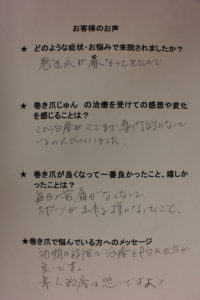 お客様のお声
★ どのような症状・お悩みで来院されましたか？
巻き爪が痛くなってきたので
★ 巻き爪じゅん の治療を受けての感想や変化
を感じることは？
この治療がここまで専門的になって
いるのにびっくりしました。
★ 巻き爪が良くなって一番良かったこと、嬉し
かったことは？
毎日が苦痛がなくなって、
スポーツが出来る様になったこと。
★巻き爪で悩んでいる方へのメッセージ
初期の段階で治療を
方が
良いです。
素人治療は恐いですよ。